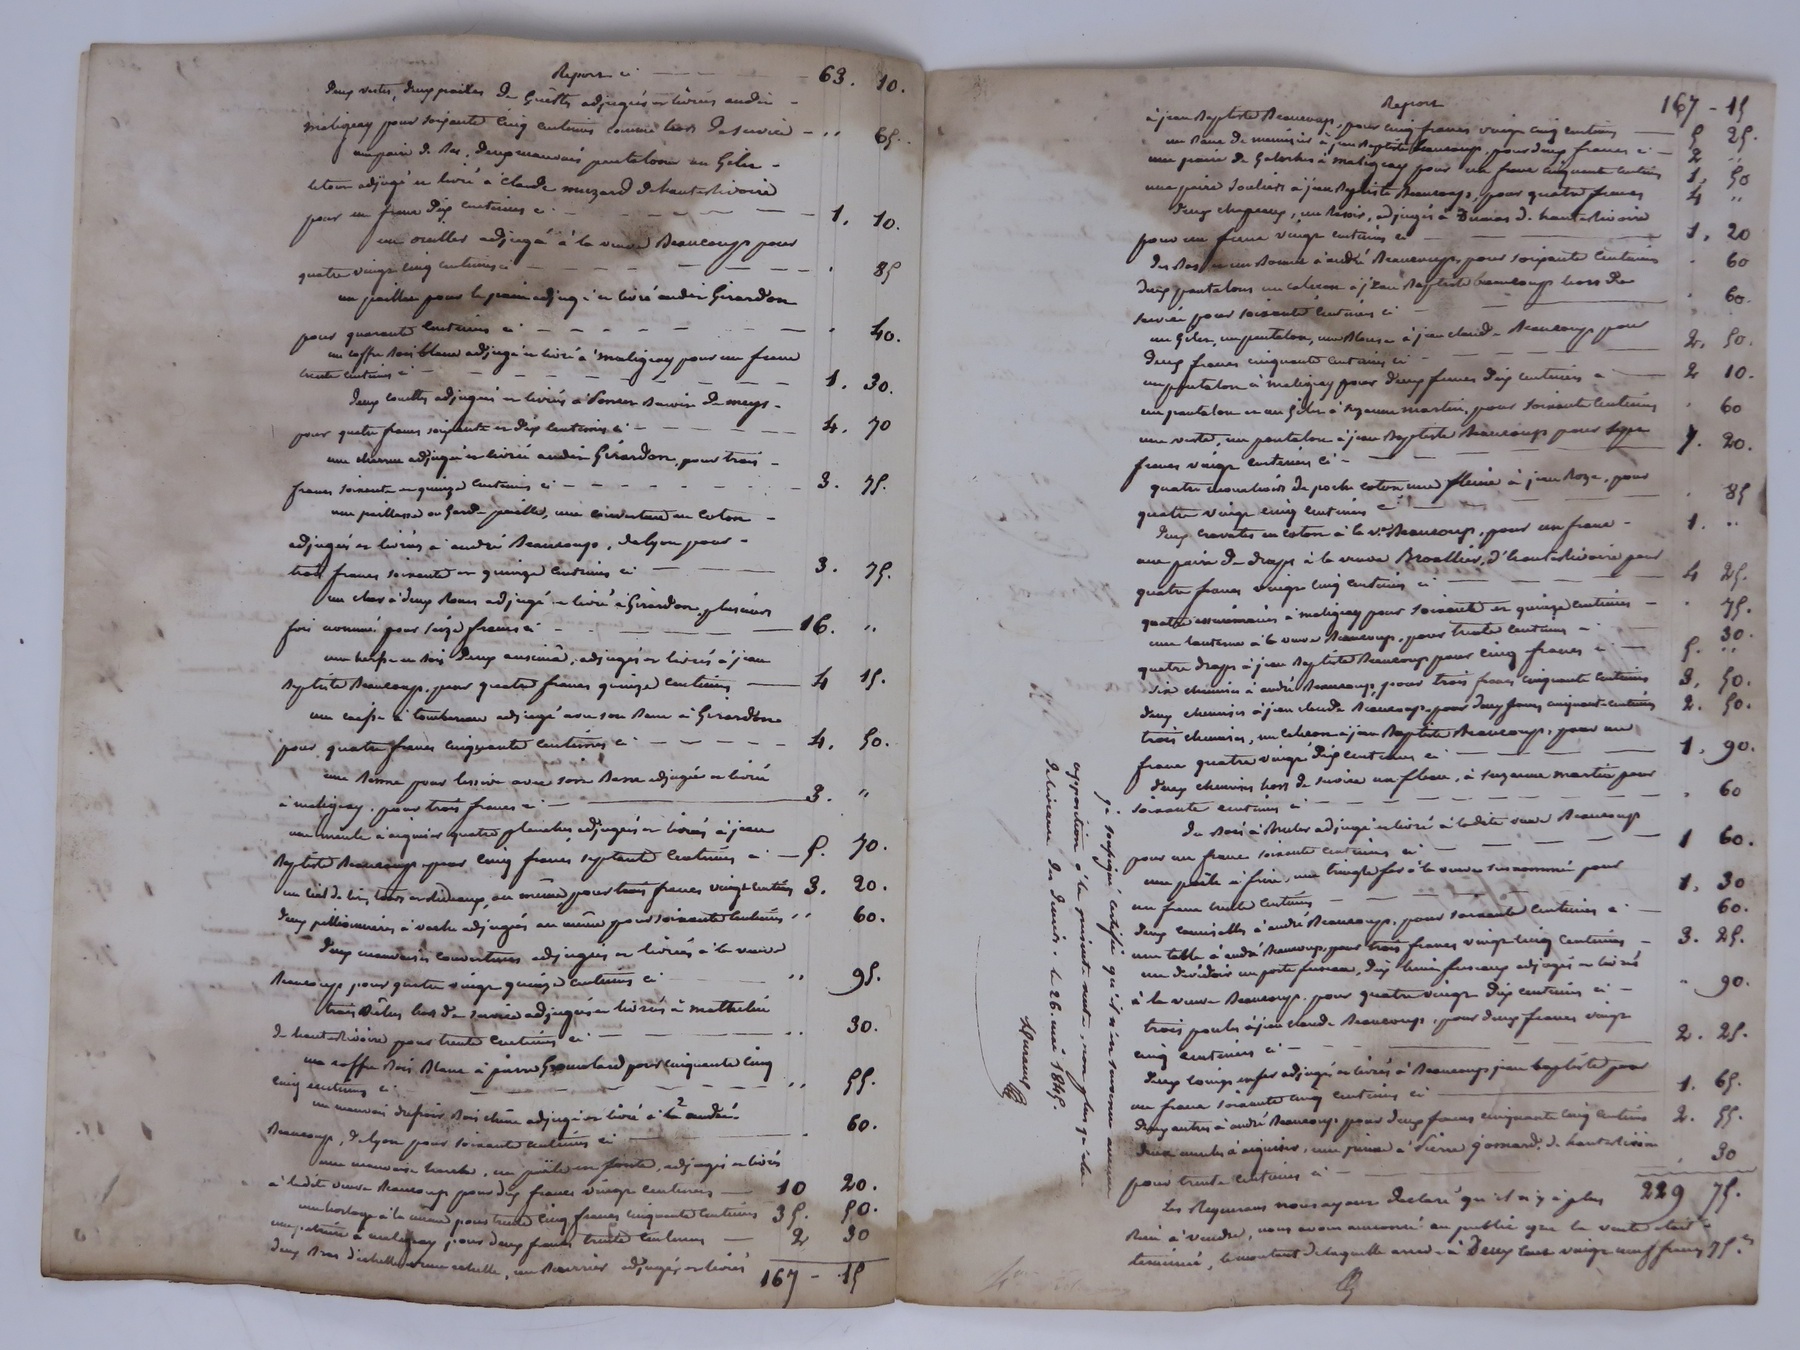 Report ci — 63. 10.
deux vestes, deux paires de guêtres adjugés et livrés audit
maligeay pour soixante cinq centimes comme hors de service — " 65.
une paire de Bas, deux mauvais pantalons un Gilet
le tout adjugé et livré à Claude muzard de hauterivoire
pour un franc dix centimes ci — 1. 10.
un oreiller adjugé à la veuve Beaucoup pour
quatre vingt cinq centimes ci — 85
un paillas pour le pain adjugé et livré audit Girardon
pour quarante centimes ci — 40.
un coffre Bois blanc adjugé et livré à maligeay pour un franc
trente centimes ci — 1. 30.
deux adjugés et livrés à de meys
pour quatre francs soixante et dix centimes ci — 4. 70
une adjugée et livrée audit Girardon, pour trois
francs soixante et quinze centimes ci — 3. 75.
une paillasse ou Garde paille, une couverture en coton
adjugés et livrés à andré Beaucoup, de lyon pour
trois francs soixante et quinze centimes ci — 3. 75.
un char à deux Roues adjugé et livré à Girardon, plusieurs
fois nommé pour seize francs ci — 16. "
une herse en Bois, deux adjugés et livrés à jean
Baptiste Beaucoup, pour quatre francs quinze centimes — 4 15.
une caisse à tombereau adjugé avec son Banc à Girardon
pour quatre francs cinquante centimes ci — 4. 50.
une Benne pour lessive avec son Banc adjugée et livrée
à maligeay, pour trois francs ci — 3. "
une meule à aiguiser quatre planches adjugés et livrés à jean
Baptiste Beaucoup, pour cinq francs septante centimes ci — 5. 70.
un lied de lit, tours et rideaux, au même, pour trois francs vingt centimes 3. 20.
deux à vache adjugés au même pour soixante centimes " 60.
deux mauvaises couvertures adjugés et livrés à la veuve
Beaucoup, pour quatre vingt quinze centimes ci — " 95.
trois hors de service adjugés et livrés à mathelin
de hauterivoire pour trente centimes ci — " 30.
un coffre Bois Blanc à pierre pour cinquante cinq
cinq centimes ci — " 55.
un mauvais Bois chêne adjugé et livré à andré
Beaucoup, de lyon pour soixante centimes ci — 60.
une mauvaise, un poële en fonte, adjugés et livrés
à ladite veuve Beaucoup pour dix francs vingt centimes — 10 20.
une horloge à la même pour trente cinq francs cinquante centimes 35. 50.
une à maligeay pour deux francs trente centimes — 2 30
deux Bras d'échelle et une échelle, un adjugés et livrés
167 - 15
Report 167 - 15
à jean Baptiste Beaucoup, pour cinq francs vingt cinq centimes — 5 25.
un Banc de menuisier à jean Baptiste Beaucoup, pour deux francs ci — 2 "
une paire de Galoches à maligeay pour un franc cinquante centimes 1. 50
une paire souliers à jean Baptiste Beaucoup, pour quatre francs 4 "
deux chapeaux, un Rasoir, adjugés à Dumas de hauterivoire
pour un franc vingt centimes ci — 1. 20
des Bas et un Bonnet à andré Beaucoup, pour soixante centimes 60
deux pantalons un caleçon à jean Baptiste beaucoup hors de
service pour soixante centimes ci — 60.
un Gilet, un pantalon, une Blouse à jean claude Beaucoup pour
deux francs cinquante centimes ci — 2. 50.
un pantalon à maligeay pour deux francs dix centimes ci — 2 10.
un pantalon et un Gilet à suzanne martin, pour soixante centimes 60
une veste, un pantalon à jean Baptiste Beaucoup pour sept
francs vingt centimes ci — 7. 20.
quatre mouchoirs de poche coton à jean, pour
quatre vingt cinq centimes ci — 85
deux cravates en coton à la Ve Beaucoup, pour un franc — 1. "
une paire de draps à la veuve, d'hauterivoire pour
quatre francs vingt cinq centimes ci — 4 25.
quatre essuiemains à maligeay pour soixante et quinze centimes — 75.
une lanterne à la veuve Beaucoup, pour trente centimes — 30.
quatre draps à jean Baptiste Beaucoup pour cinq francs ci — 5. "
six chemises à andré Beaucoup, pour trois francs cinquante centimes 3. 50.
deux chemises à jean claude Beaucoup, pour deux francs cinquante centimes 2. 50.
trois chemises, un caleçon à jean Baptiste Beaucoup, pour un
franc quatre vingt dix centimes ci — 1. 90.
deux chemises hors de service un fléau, à suzanne martin pour
soixante centimes ci — 60
du Bois à Bruler adjugé et livré à ladite veuve Beaucoup
pour un franc soixante centimes ci — 1 60.
une poêle à frire, une tringle fer à la veuve susnommée pour
un franc trente centimes — 1. 30
deux à andré Beaucoup, pour soixante centimes ci — 60.
une table à andré Beaucoup, pour trois francs vingt cinq centimes — 3. 25.
un dévidoir un porte fuseau, dix fuseaux adjugés et livrés
à la veuve Beaucoup, pour quatre vingt dix centimes ci — " 90.
trois poules à jean claude Beaucoup, pour deux francs vingt
cinq centimes ci — 2. 25.
deux coings en fer adjugés et livrés à Beaucoup jean baptiste pour
un franc soixante cinq centimes ci — 1. 65.
deux autres à andré Beaucoup pour deux francs cinquante cinq centimes 2. 55.
deux meules à aiguiser, une à Pierre de hauterivoire
pour trente centimes ci — 30
229 75.
Les Requerans nous ayant declaré qu'il n'y a plus
Rien à vendre, nous avons annoncé au public que la vente était
terminée, le montant de laquelle arrive à Deux cent vingt neuf francs 75. cs
je soussigné certifie qu'il n'est survenu aucune
opposition à la présente vente, non plus qu'à la
délivrance des deniers. le 26. mai 1845.